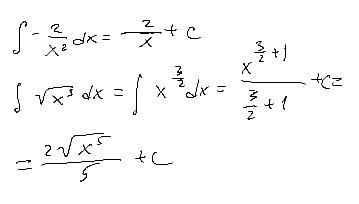 ∫ - 2/x² dx = 2/x + C
∫ √x³ dx = ∫ x^(3/2) dx = x^(3/2 + 1)/(3/2 + 1) + C =
= 2√x⁵/5 + C